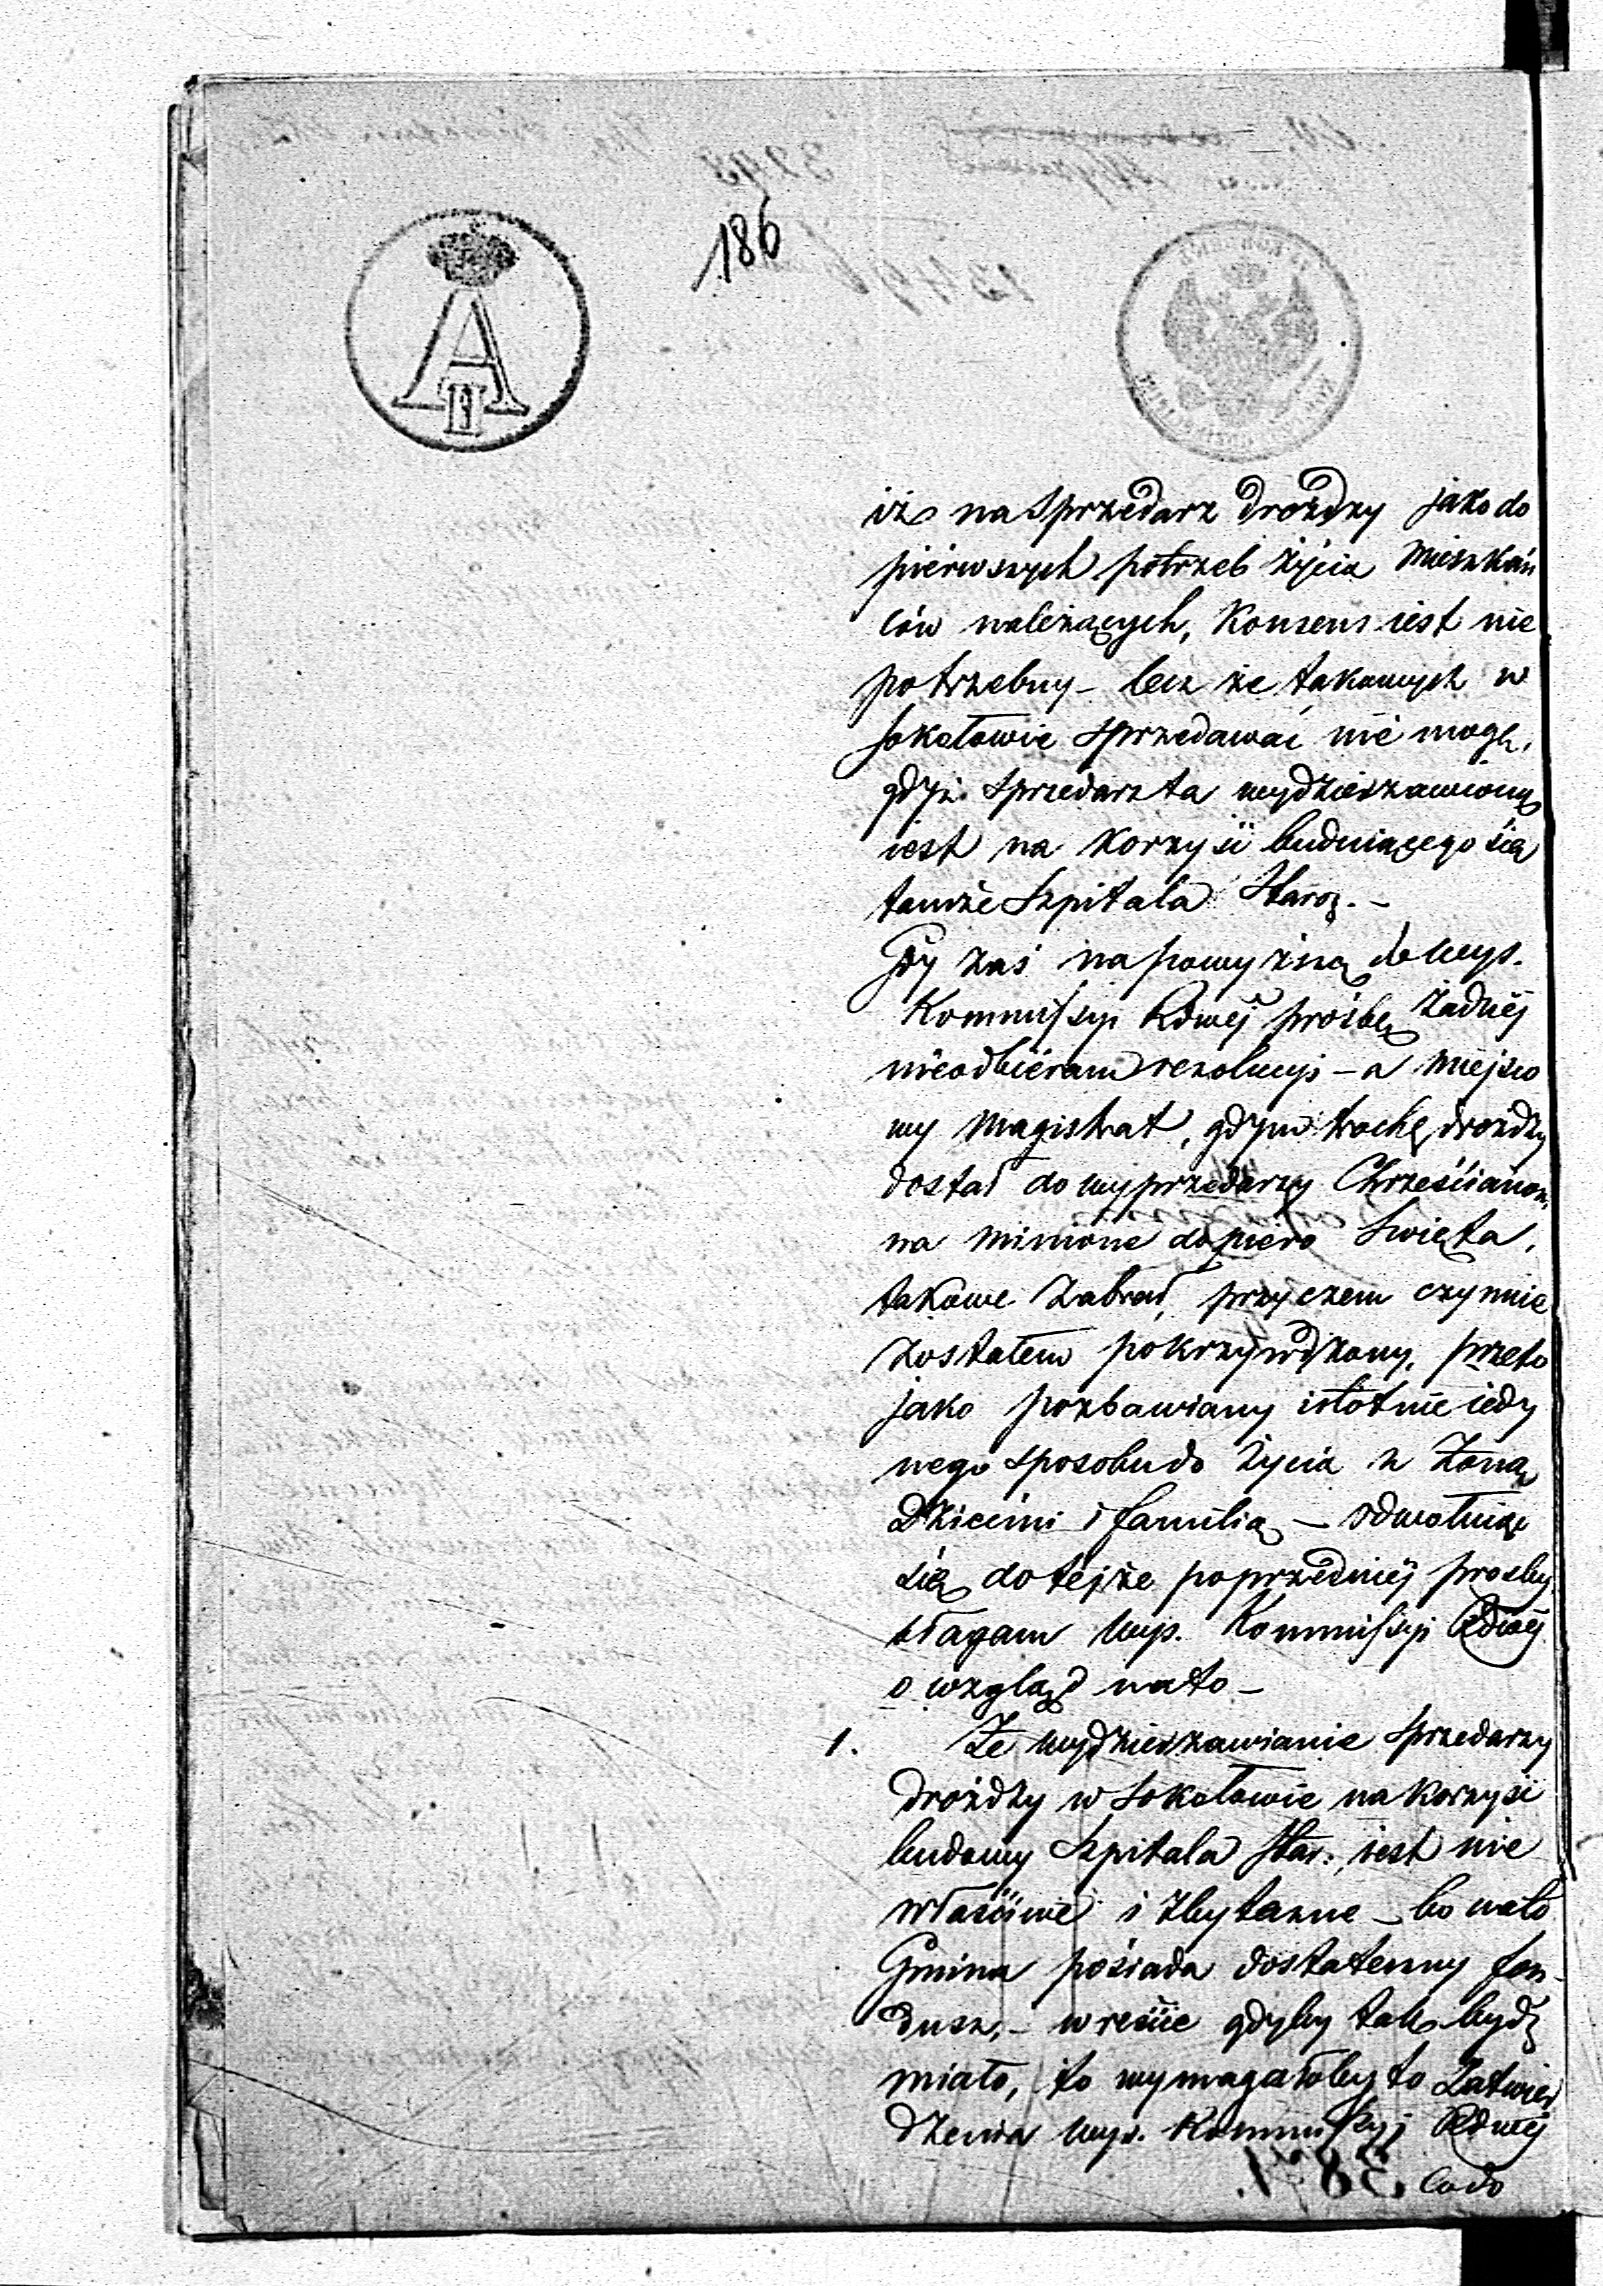 186
A
II
iż na sprzedarz drożdzy jako do
pierwszych potrzeb życia Mieszkań
ców należących, Konsens iest nie
potrzebny – lecz że takowych w
Sokołowie sprzedawać nie mogę,
gdyż sprzedarz ta wydzierżawioną
iest na korzyść buduiącego się
tamże Szpitala Staroz. –
Gdy zaś na powyższą do Wys.
Kommissyi Rdwej prośbę żadnej
nieodbieram rezolucyi – a miejsco
wy Magistrat, gdym trochę drożdży
dostał do wyprzedarzy Chrześcianom
na minione dopiero Swięta,
takowe zabrał, przyczem czynnie
zostałem pokrzywdzony, przeto
jako pozbawiany istotnie iedy
nego sposobu do życia z Żoną
Dziećmi i familią – odwołuiąc
się do tejże poprzedniej prosby
błagam Wys. Kommissyi Rdwej
o wzgląd na to –
1. Że wydzierżawianie sprzedarzy
drożdży w Sokołowie na korzyść
budowy Szpitala Star: iest nie
właściwe i zbyteczne – bo na to
Gmina posiada dostateczny fun-
dusz, – wreście gdyby tak bydź
miało, to wymagałoby to Zatwier
dzenia Wys. Kommissyi Rdwej
Co do